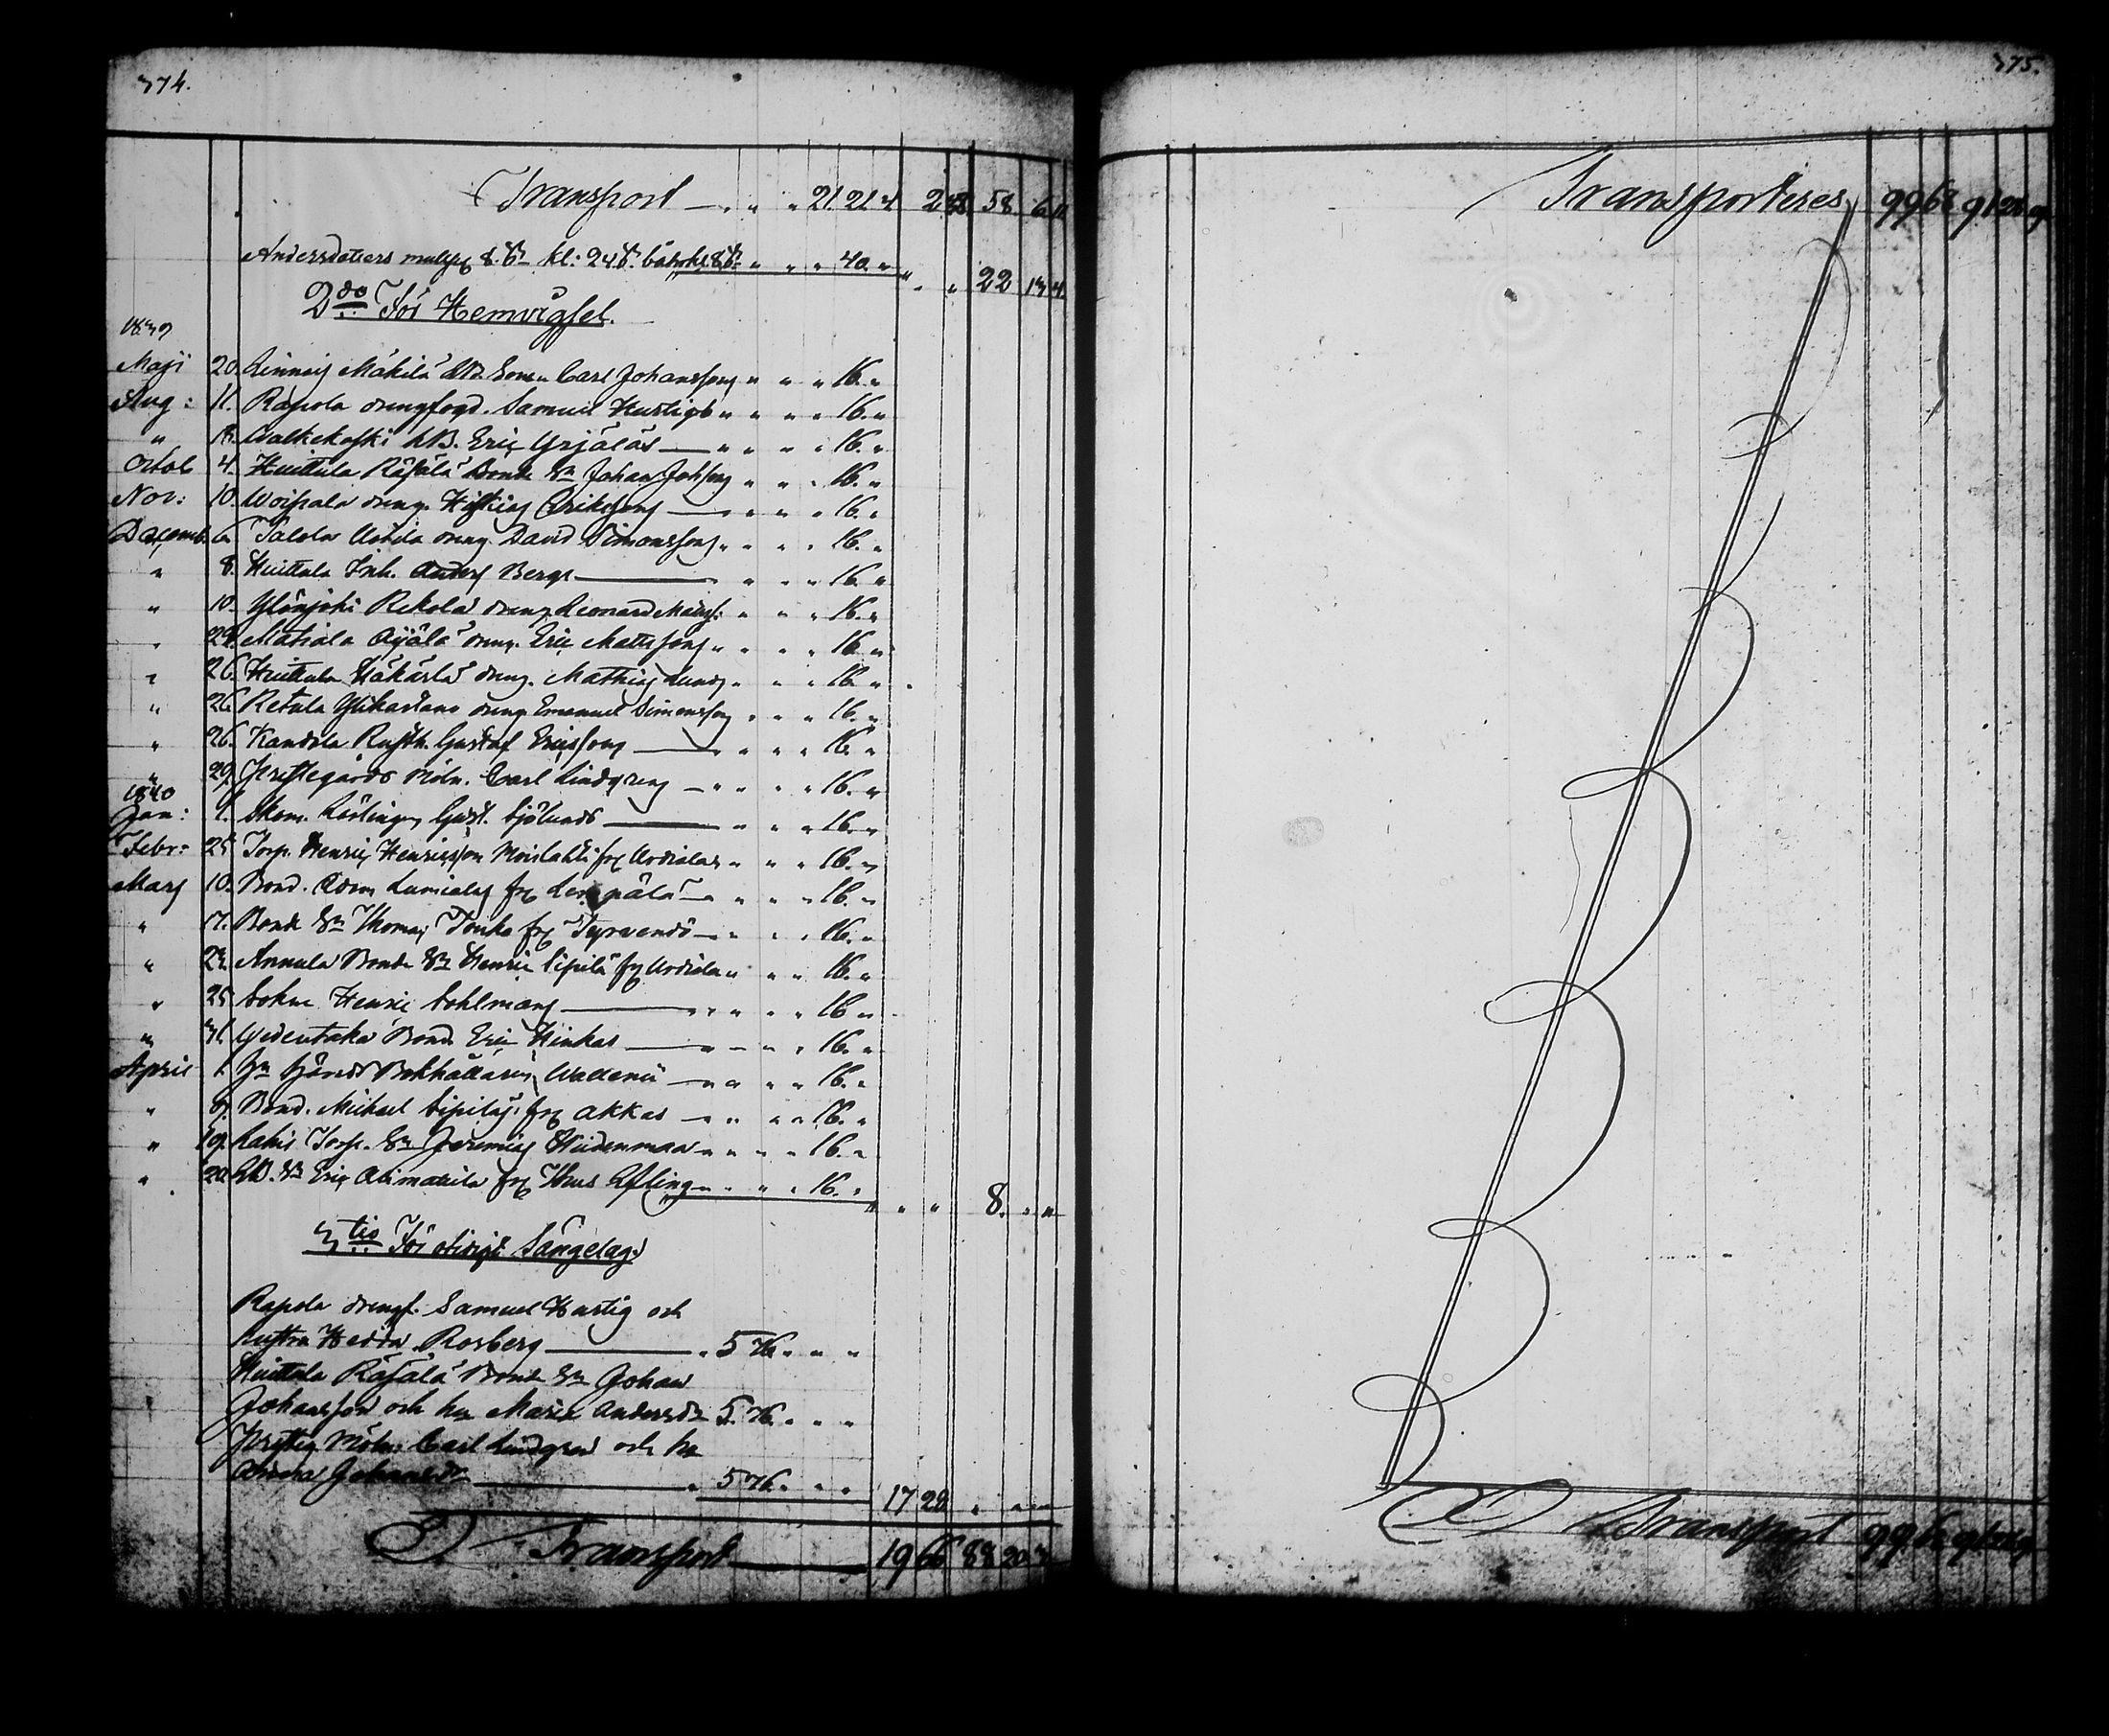 374.
Transport — „ „ „ 21. 21. 4 2 48 58 6 11
Andersdoters mullp 8. kl: 24 båhrkl 8 „ „ „ 40. „
„ „ „ 22 13 4
2do För Hemvigsel.
1839
Maji 20. Linnais Mäkilä Son Carl Johansson „ „ „ 16. „
Aug: 11. Rapola drengfogd. Samuel Hurtig „ „ „ 16. „
„ Walkekoski Eric Yrjölä — „ „ „ 16. „
Octob 4. Huittula Räsälä Bonde Sn Johan Johsson „ „ „ 16. „
Nov: 10. Woipala dreng. Hiskias Eriksson — „ „ „ 16. „
Decemb. 6. Talola Uotila dreng. David Simonsson „ „ „ 16. „
„ 8. Huittula Inh. Anders Berg — „ „ „ 16. „
„ 10. Ylönjoki Rekola dreng Leonard Matss: „ „ „ 16. „
„ 24. Matiala Äijälä dreng. Eric Mattsson „ „ „ 16 „
„ 26. Huittula Käkärlä dreng. Mathias Lund „ „ „ 16. „
„ 26. Retula Ylikartano dreng Emanuel Simonsson „ „ „ 16. „
„ 26. Kandola Rusth. Gustaf Ericsson — „ „ „ 16. „
„ 29. Prestegårds Möln. Carl Lindgren — „ „ „ 16. „
1840
Jan: 1. Skom. Lärling Gust. Sjölund — „ „ 16. „
Febr: 25. Torp. Henric Henricsson Moislahti frx Urdiala „ „ „ 16. „
Mars 10. Bond. Adam Lumiala frx Lempälä — „ „ „ 16. „
„ 17. Bonde Sn Thomas Touko frx Tyrvendö — „ „ „ 16. „
„ 23. Annula Bonde Sn Henric Sipilä frx Urdiala „ „ „ 16. „
„ 25. Sokne Henric Sohlman — „ „ „ 16 „
„ 31. Yedentaka Bond. Eric Hinkas — „ „ „ 16. „
April 1. Hn Gårds Bokhållaren Wallenii — „ „ „ 16. „
„ 9. Bond. Michael Sipilä frx Akkas — „ „ „ 16. „
„ 19. Lahis Torp. Sn Jeremias Hiidenmaa „ „ „ 16. „
„ 20. Sn Eric Alimattila frx Hus „ „ „ 16. „
„ „ „ 8. „ „
3tio För Sängelag.
Rapola drengf. Samuel Hurtig och
hustru Hedda Rosberg — „ 5 76. „ „ „
Huittula Räsälä Bonde Sn Johan
Johansson och hu Maria Andersdr 5. 76. „ „ „
Presteg Möln: Carl Lindgren och hu
Anna Johansdr — „ 5 76. „ „ „
17 28. „ „ „
Transport — 19 66 88 20. 3
375.
Transporteres 99 62 91 28 9
Transport 99 62 91 28 9